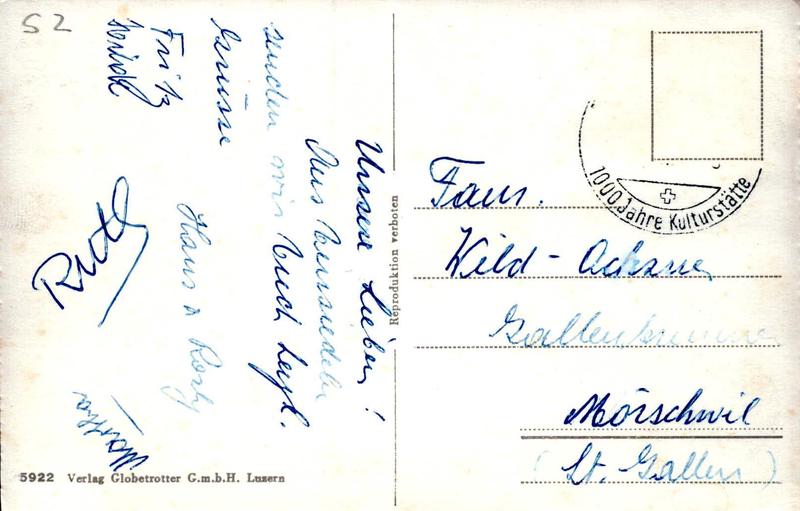 52
Unsere Lieben!
Aus Einsiedeln
senden wir Euch herzl.
Grüsse
Fritz
Hans & Rosly
Ruth
Martha
Fam.
Wild-Ackermann
Gallenbrunnen
Mörschwil
(St. Gallen)
1000 Jahre Kulturstätte
Reproduktion verboten
5922 Verlag Globetrotter G.m.b.H. Luzern